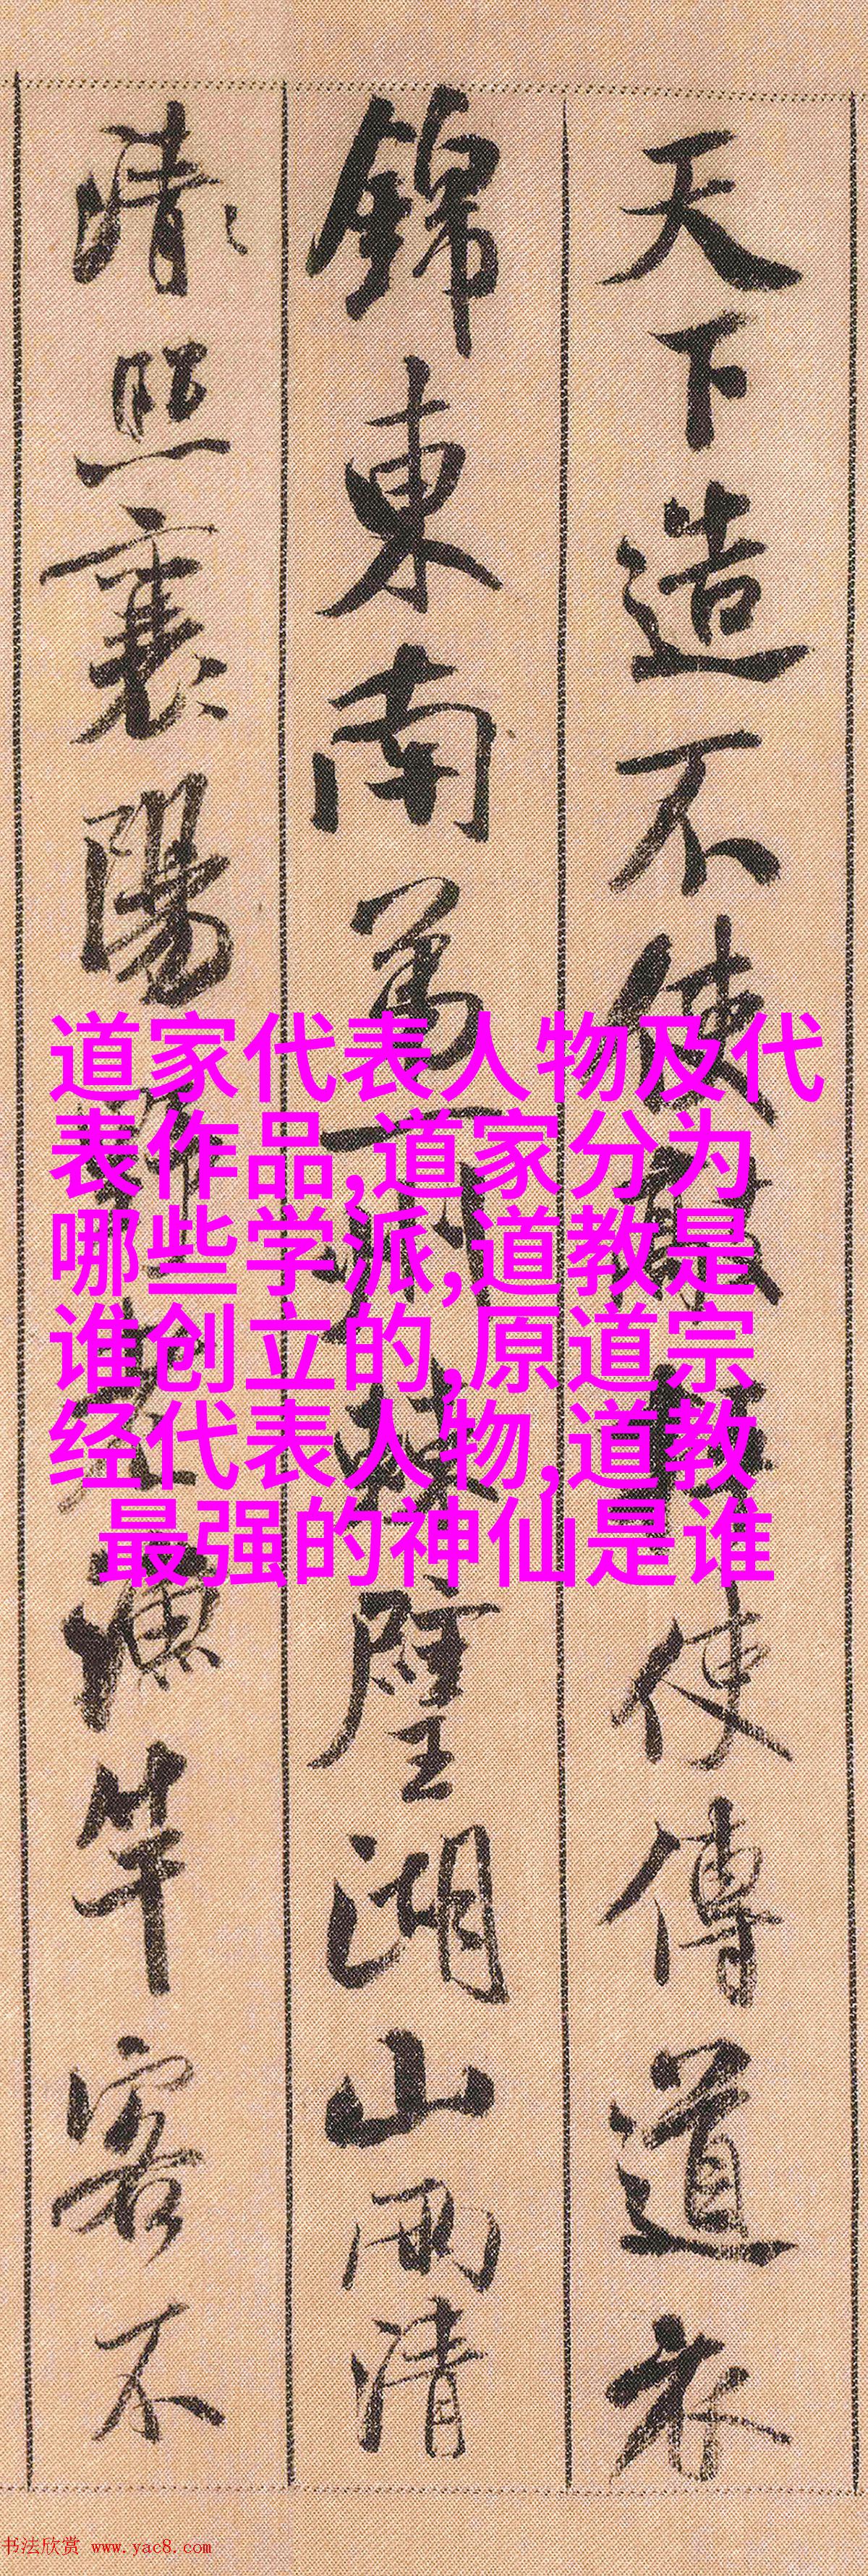 天下造不使敲枰使傳道衣
錦東南第一州棘璧湖山兩清
清照襄陽野老漁竿客不
道家代表人物及代
表作品,道家分为
哪些学派,道教是
谁创立的,原道宗
经代表人物,道教
最强的神仙是谁
书法欣赏 www.yac8.com